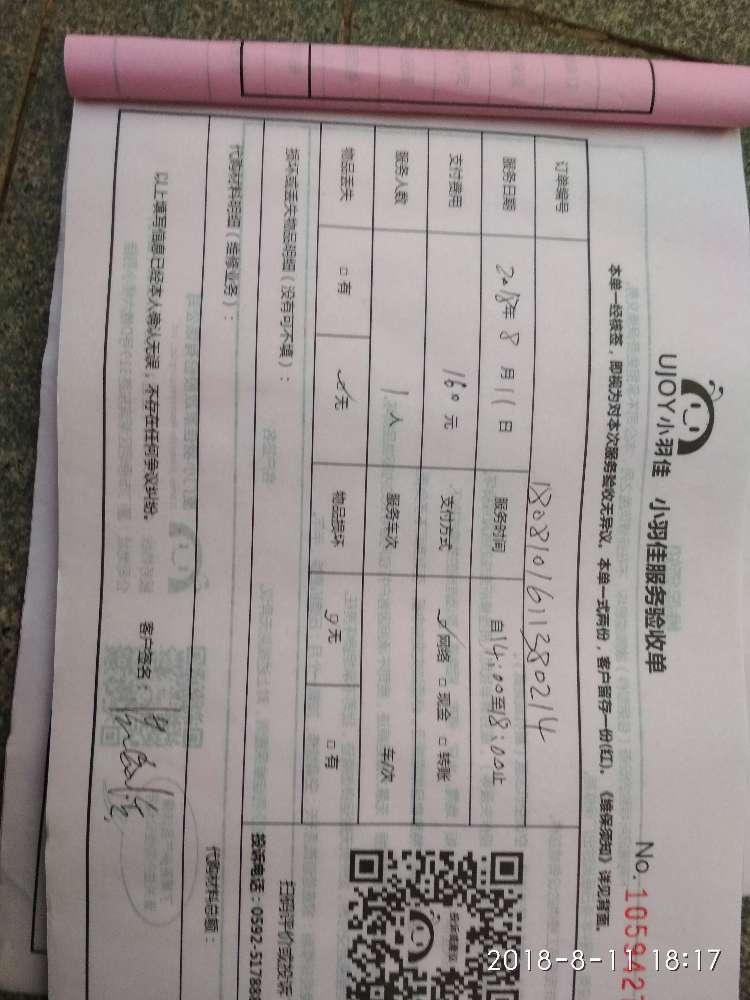 UJOY小羽佳 小羽佳服务验收单
No.1059427
本单一经核签，即视为对本次服务验收无异议。本单一式两份，客户留存一份(红)。《维保须知》详见背面。
订单编号 1808101611380214
服务日期 2018年 8 月 11 日 服务时间 自14:00至18:00止
支付费用 160 元 支付方式 网络 □ 现金 □ 转账
服务人数 1 人 服务车次 车/次
物品丢失 □ 有 无 物品损坏 无 □ 有
损坏或丢失物品明细（没有可不填）：
扫码评价或投诉
投诉电话：0592-517888
代购材料明细（维修业务）：
代购材料总额：
以上填写信息已经本人确认无误，不存在任何争议纠纷。
客户签名：
2018-8-11 18:17